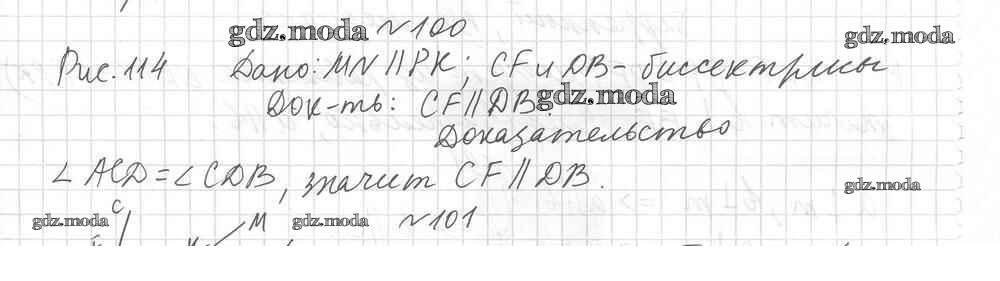 gdz.moda №100 gdz.moda
Рис. 114 Дано: MN || PK; CF и DB - биссектрисы
Док-ть: CF || DB. gdz.moda
Доказательство
∠ACD = ∠CDB, значит CF || DB.
gdz.moda
gdz.moda C M gdz.moda №101